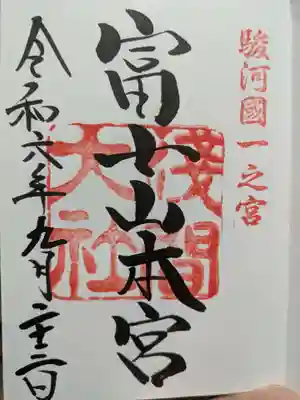 駿河國一之宮
富士山本宮
淺間
大社
令和六年九月二十二日